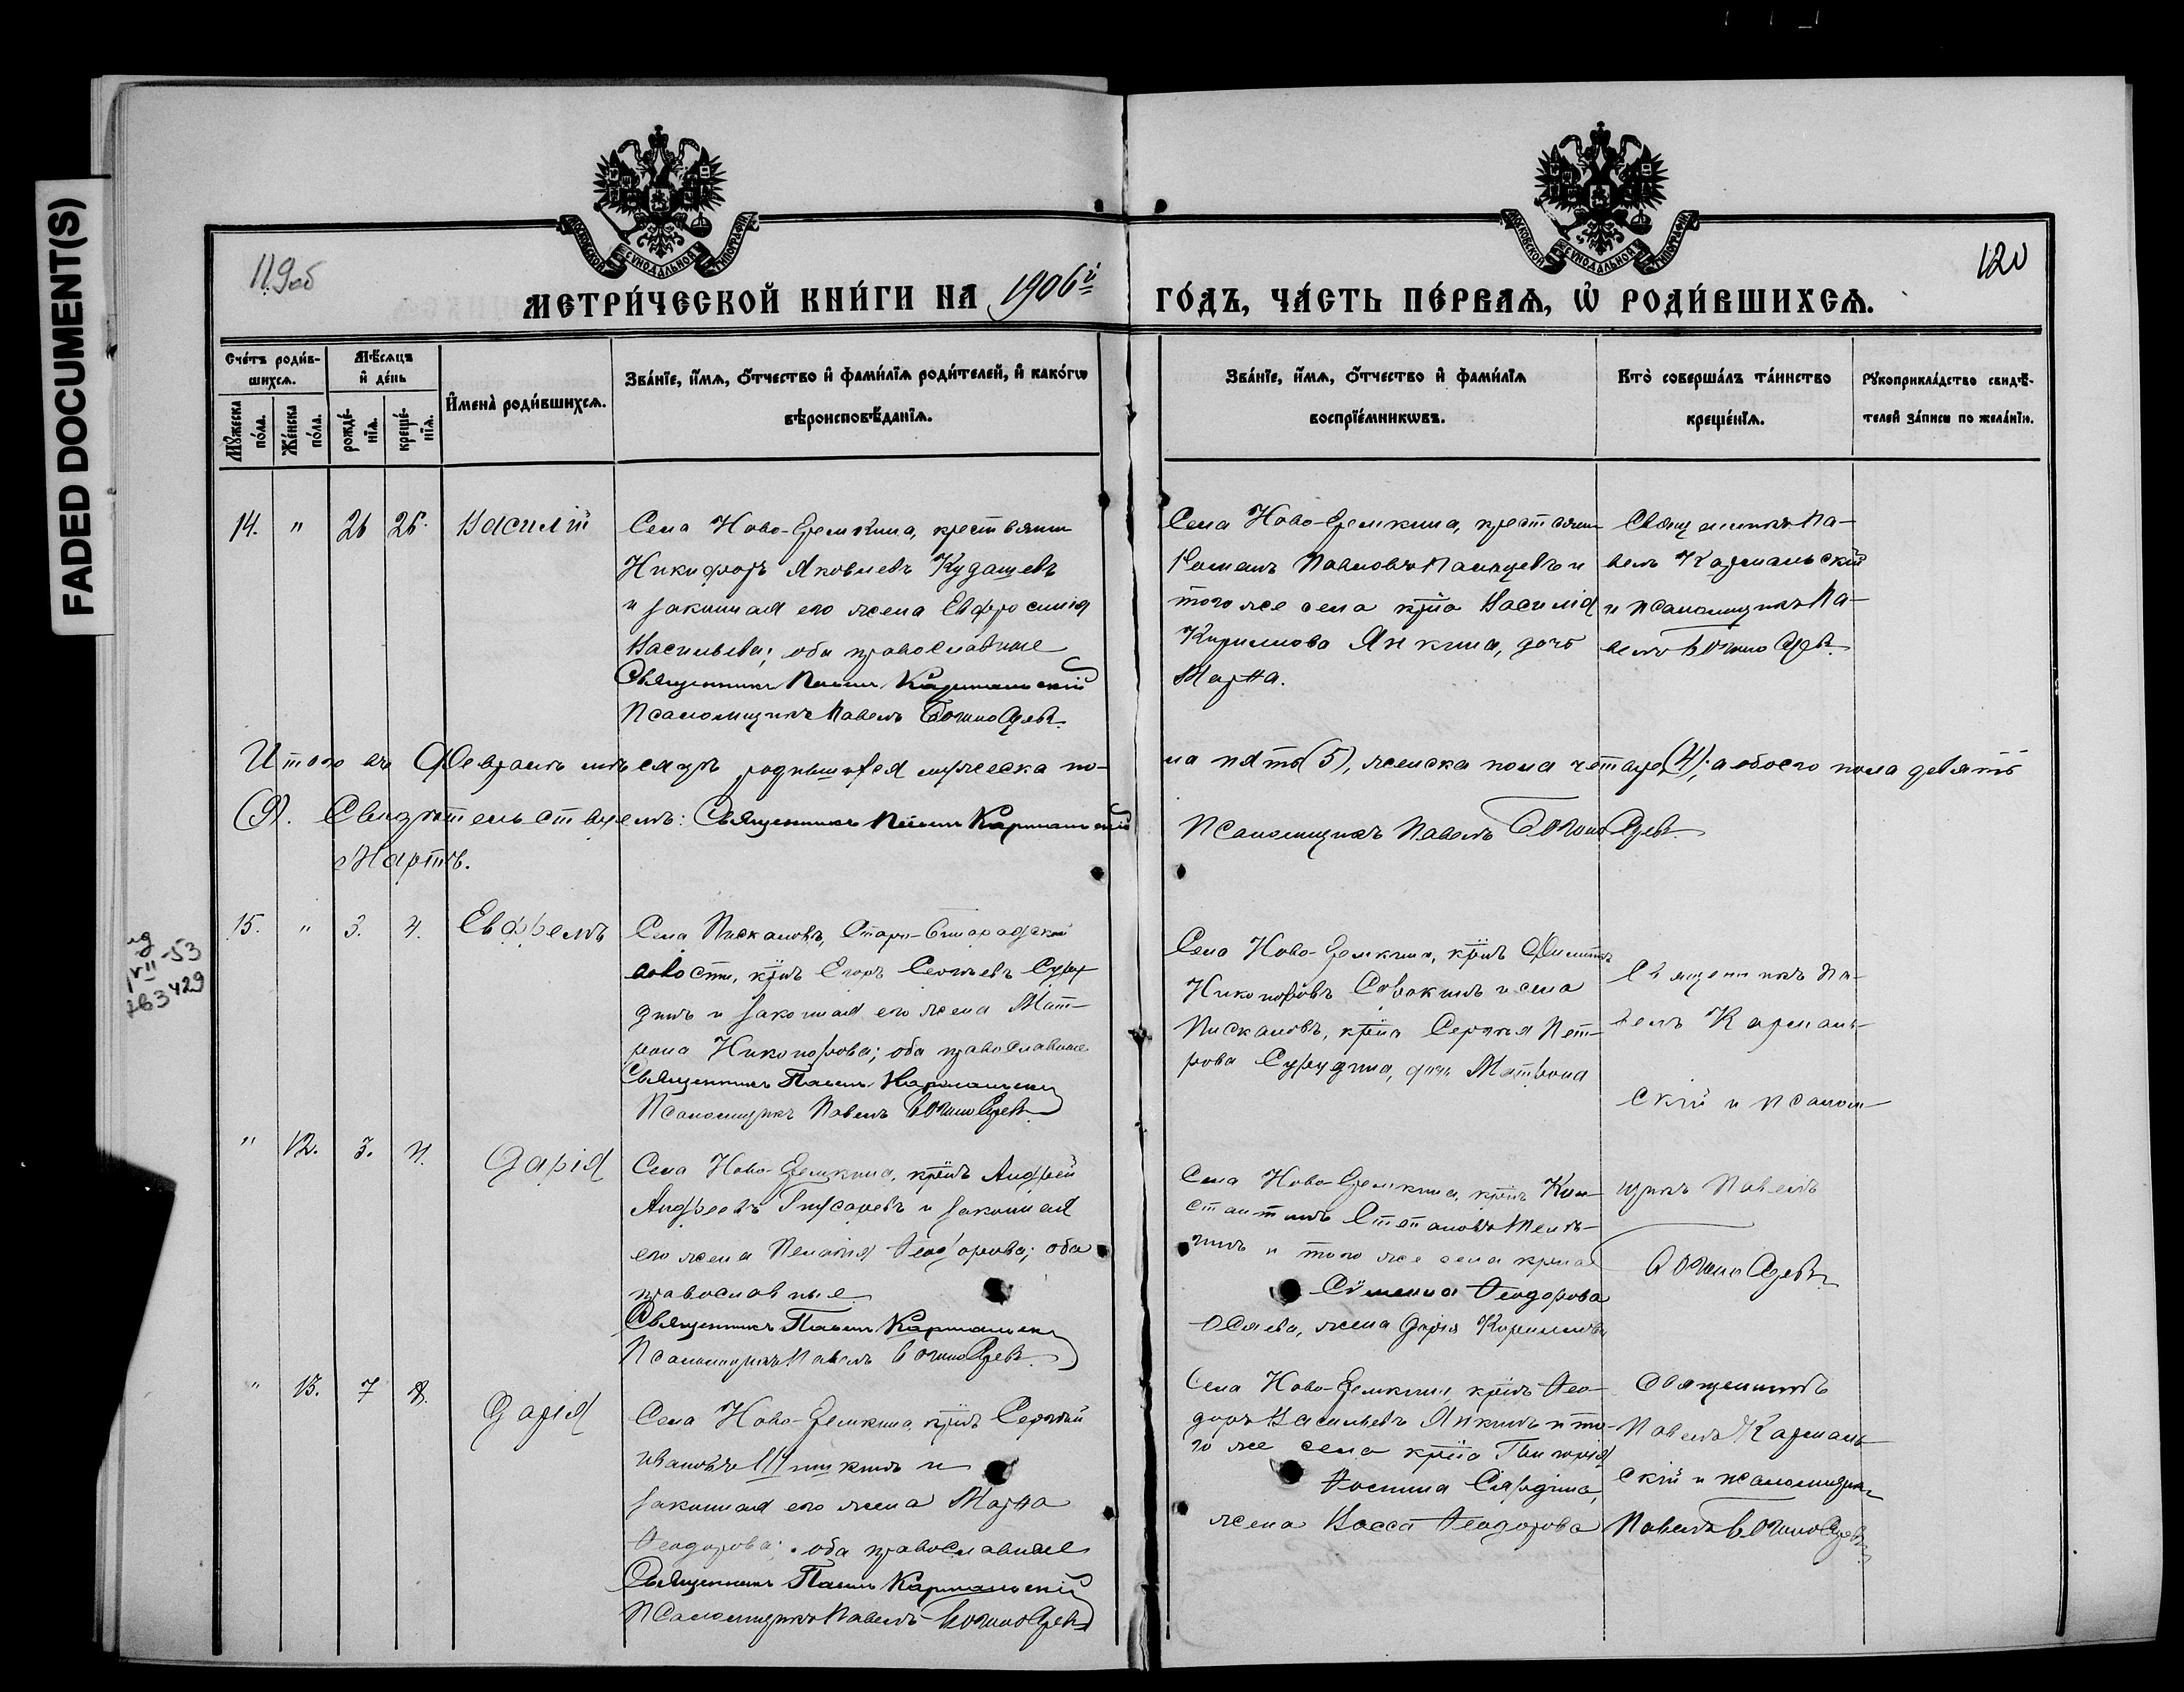 FADED DOCUMENT(S)
119об
120
МОСКОВСКОЙ СѴНОДАЛЬНОЙ ТИПОГРАФІИ
МОСКОВСКОЙ СѴНОДАЛЬНОЙ ТИПОГРАФІИ
МЕТРИ́ЧЕСКОЙ КНИ́ГИ НА 1906й ГО́ДЪ, ЧА́СТЬ ПЕ́РВАѦ, Ѽ РОДИ́ВШИХСѦ.
Сче́тъ роди́в-
шихсѧ.
Мꙋ́жеска по́ла.
Же́нска по́ла.
Мѣ́сѧцъ и҆ де́нь
рожде́-
нїѧ.
креще́-
нїѧ.
И҆мена̀ роди́вшихсѧ.
Зва́нїе, и҆́мѧ, о҆́тчество и҆ фами́лїѧ роди́телей, и҆ како́гѡ
вѣроисповѣ́данїѧ.
Зва́нїе, и҆́мѧ, о҆́тчество и҆ фами́лїѧ
воспрїе́мникѡвъ.
Кто̀ соверша́лъ та́инство
креще́нїѧ.
Рꙋкоприкла́дство свидѣ́-
телей за́писи по жела́нїю.
14. " 26 26. Василій
Села Ново-Еремкина, крестьянин
Никифоръ Яковлевъ Кудашевъ
и законная его жена Евфросинія
Васильева; оба православные
Священникъ Павелъ Кармальскій
Псаломщикъ Павелъ
Села Ново-Еремкина, крестьянин
Романъ Павловъ и
того же села кр-на Василія
Кириллова Янкина, дочь
Марѳа.
Священникъ Па-
велъ Кармальскій
и псаломщикъ Па-
велъ
Итого въ Февралѣ мѣсяцѣ родившихся мужеска по-
ла пять (5), женска пола четыре (4); а обоего пола девять
(9). Свидѣтельствуемъ: Священникъ Павелъ Кармальскій
Псаломщикъ Павелъ
Мартъ.
15. " 3. 4. Ефремъ
Села Пискаловъ, Старо-
волости, кр-нъ Егоръ
и законная его жена Мат-
рона Никонорова; оба православные
Священникъ Павелъ Кармальскій
Псаломщикъ Павелъ
Села Ново-Еремкина, кр-нъ Филиппъ
Никоноровъ и села
Пискаловъ, кр-на Сергѣя Пет-
рова дочь Матрона
Священникъ Па-
велъ Кармаль-
скій и псалом-
" 12. 3. 4. Дарія
Села Ново-Еремкина, кр-нъ Андрей
Андреевъ и законная
его жена Пелагія Ѳеодорова; оба
православные
Священникъ Павелъ Кармальскій
Псаломщикъ Павелъ
Села Ново-Еремкина, кр-нъ Кон-
стантинъ Степановъ
и того же села кр-на
Сѵмеона Ѳеодорова
жена Дарія Кириллова
щикъ Павелъ
" 13. 7 8. Дарія
Села Ново-Еремкина, кр-нъ Сергѣй
Ивановъ и
законная его жена Марѳа
Ѳеодорова; оба православные
Священникъ Павелъ Кармальскій
Псаломщикъ Павелъ
Села Ново-Еремкина кр-нъ Ѳео-
доръ Васильевъ Янкинъ и то-
го же села кр-на Григорія
жена Васса Ѳеодорова
Священникъ
Павелъ Кармаль-
скій и псаломщикъ
Павелъ